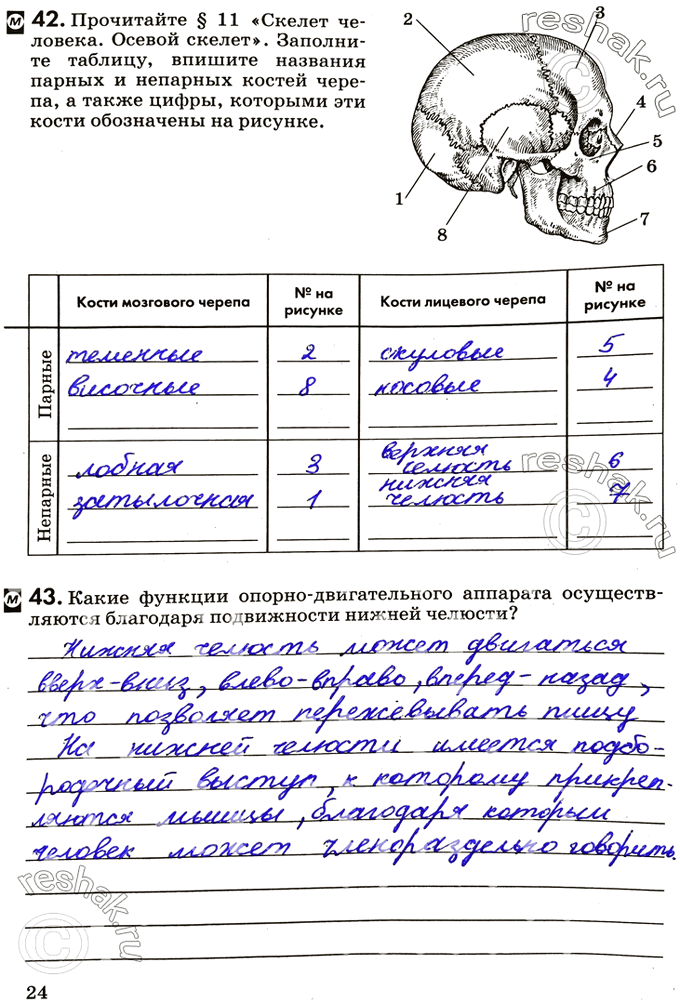 м 42. Прочитайте § 11 «Скелет че-
ловека. Осевой скелет». Заполни-
те таблицу, впишите названия
парных и непарных костей чере-
па, а также цифры, которыми эти
кости обозначены на рисунке.
2
3
4
5
6
1
7
8
reshak.ru
Кости мозгового черепа
№ на
рисунке
Кости лицевого черепа
№ на
рисунке
Парные
теменные 2 скуловые 5
височные 8 носовые 4
Непарные
лобная 3 верхняя челюсть 6
затылочная 1 нижняя челюсть 7
reshak.ru
м 43. Какие функции опорно-двигательного аппарата осуществ-
ляются благодаря подвижности нижней челюсти?
Нижняя челюсть может двигаться
вверх-вниз, влево-вправо, вперед-назад,
что позволяет пережевывать пищу
На нижней челюсти имеется подбо-
родочный выступ, к которому прикреп-
ляются мышцы, благодаря которым
человек может членораздельно говорить.
reshak.ru
reshak.ru
24